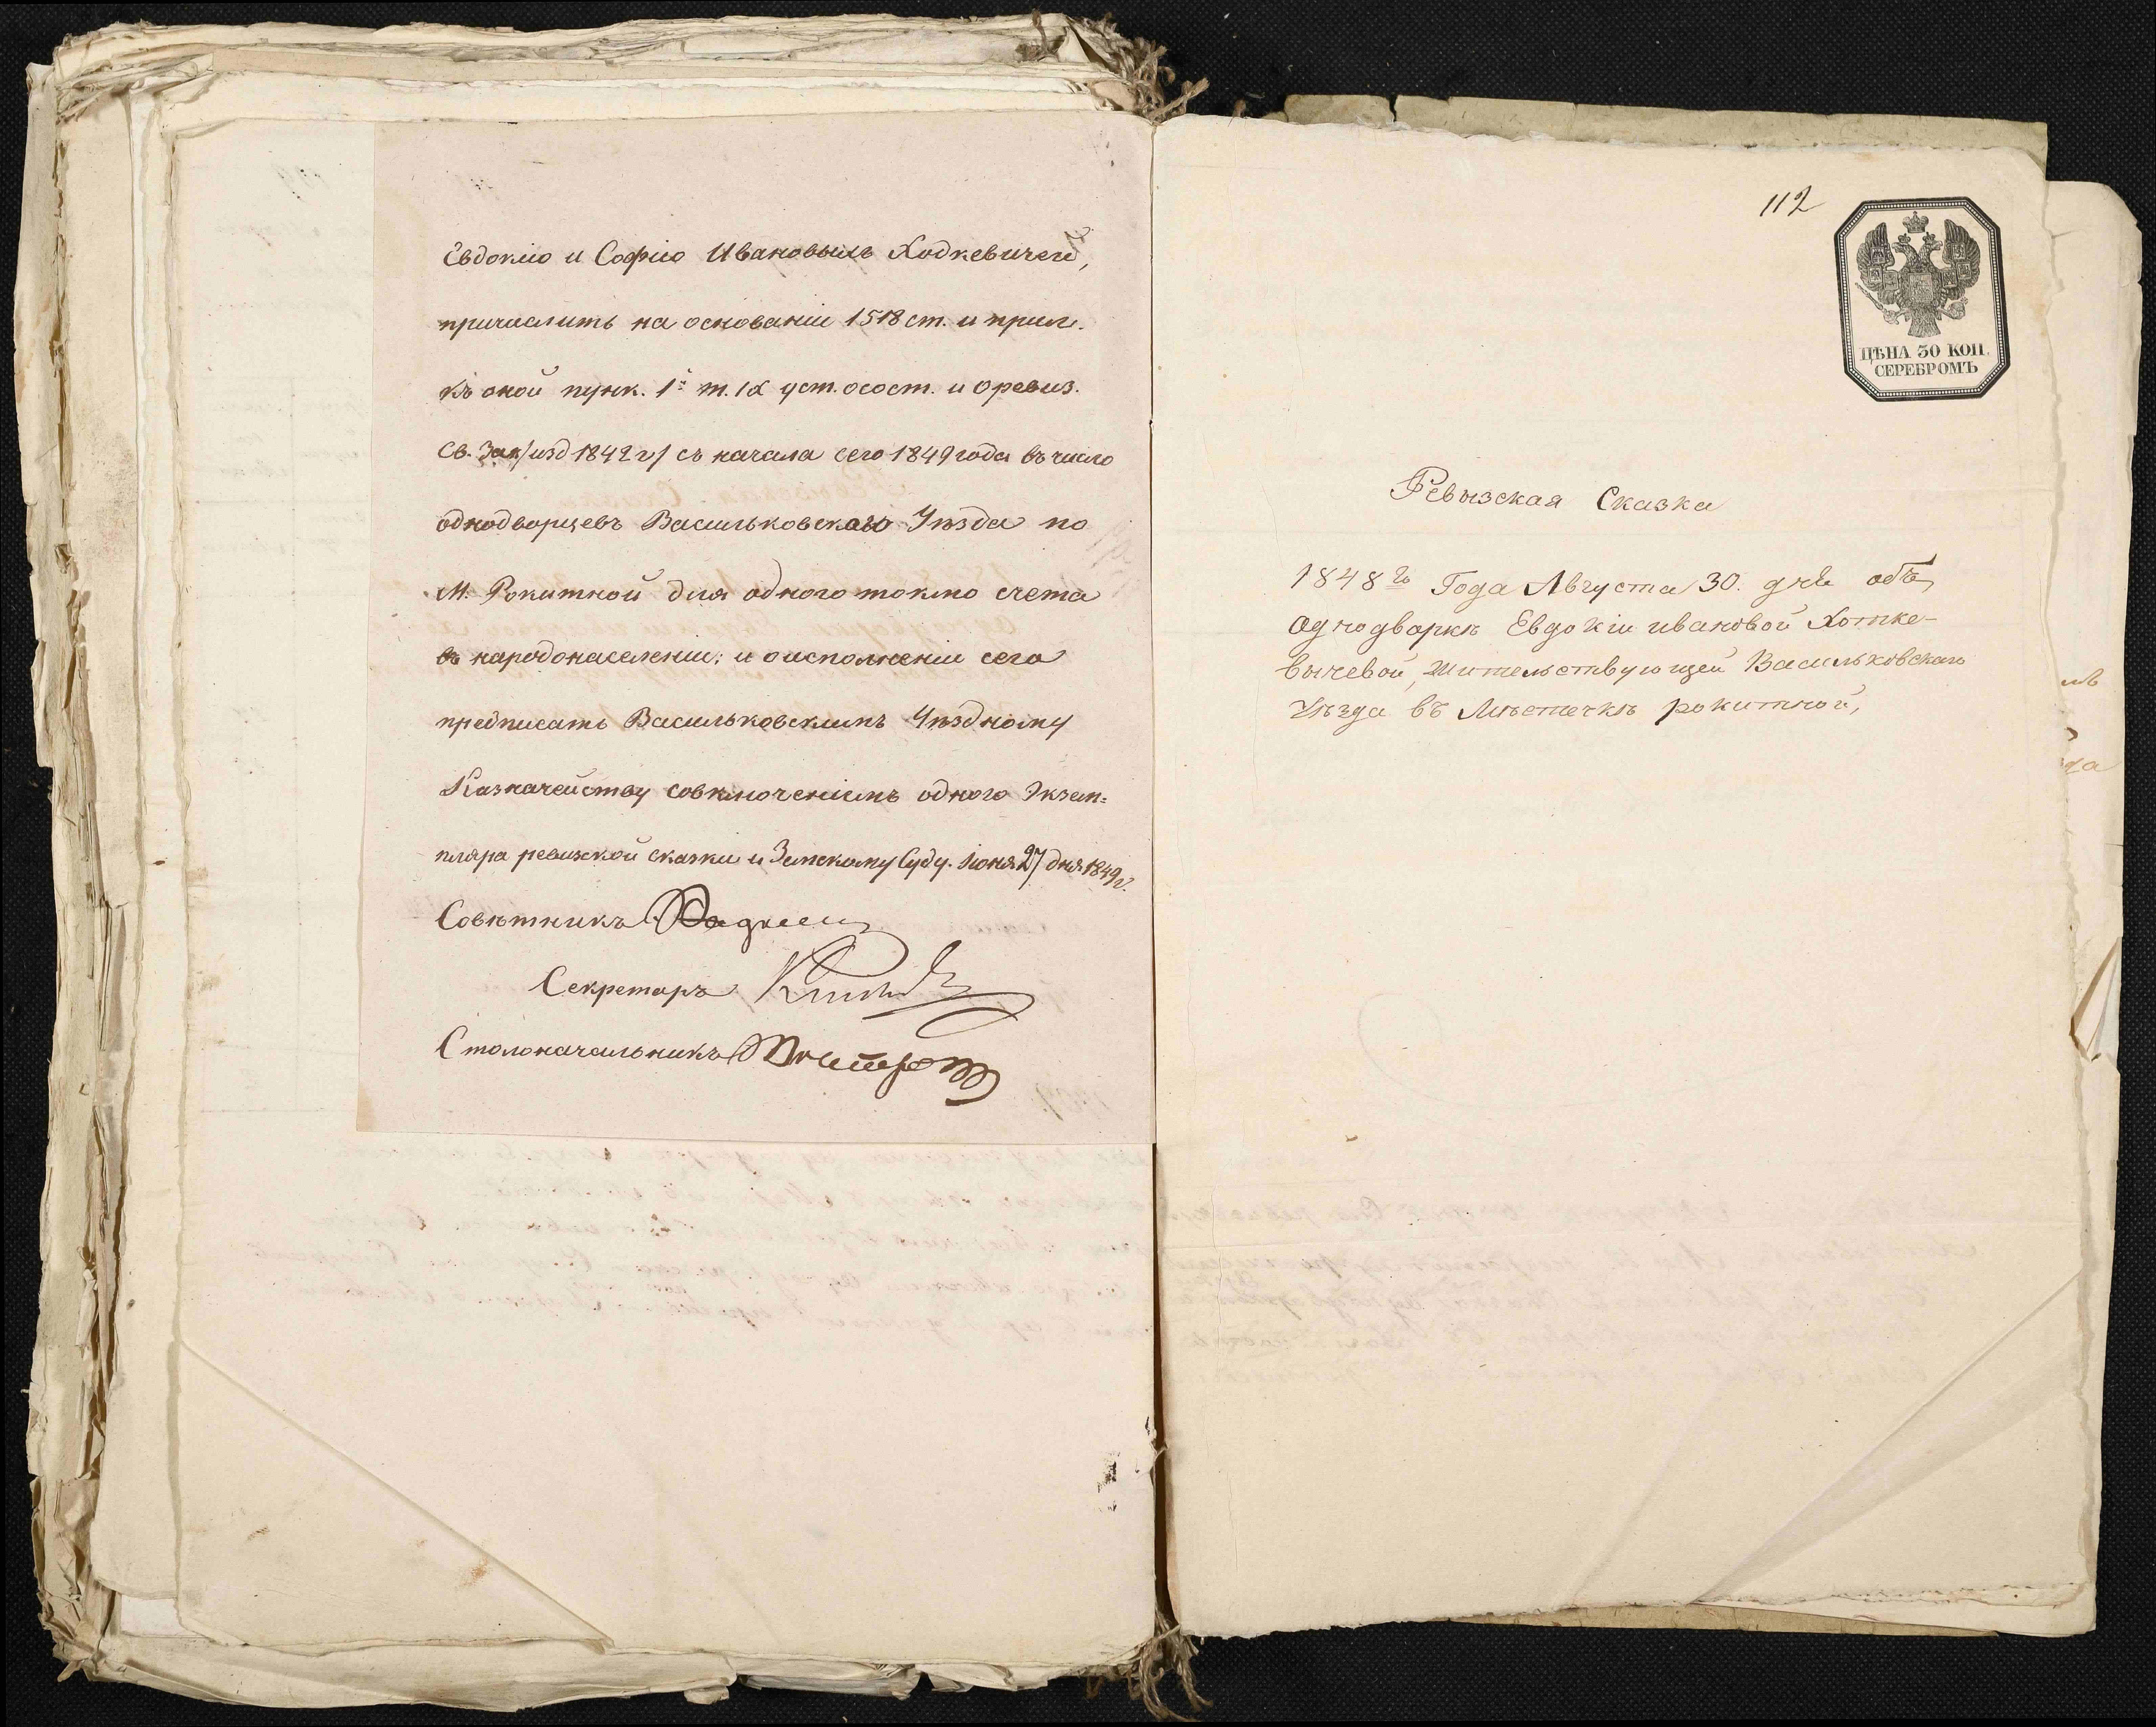 Евдокию и Софию Ивановыхъ Ходкевичей,
причислить на основаніи 1518 ст. и прил.
къ оной пунк. 1º т. IX уст. о сост. и о ревиз.
Св. Зак /изд 1842 г/ съ начала сего 1849 года въ число
однодворцевъ Васильковскаго Уѣзда по
М. Рокитной для одного токмо счета
въ народонаселеніи; и о исполненіи сего
предписать Васильковскимъ Уѣздному
Казначейству совключеніемъ одного Экзем=
пляра ревизской сказки и Земскому Суду. Іюня 27 дня 1849 г.
Совѣтникъ
Секретарь
Столоначальникъ
112
ЦѢНА 30 КОП.
СЕРЕБРОМЪ
Ревызская Сказка
1848го Года Августа 30. дня объ
Однодваркѣ Евдокіи ивановой Хотке-
вычевой, жительствующей Васильковскаго
Уѣзда въ Мѣстечкѣ рокитной,